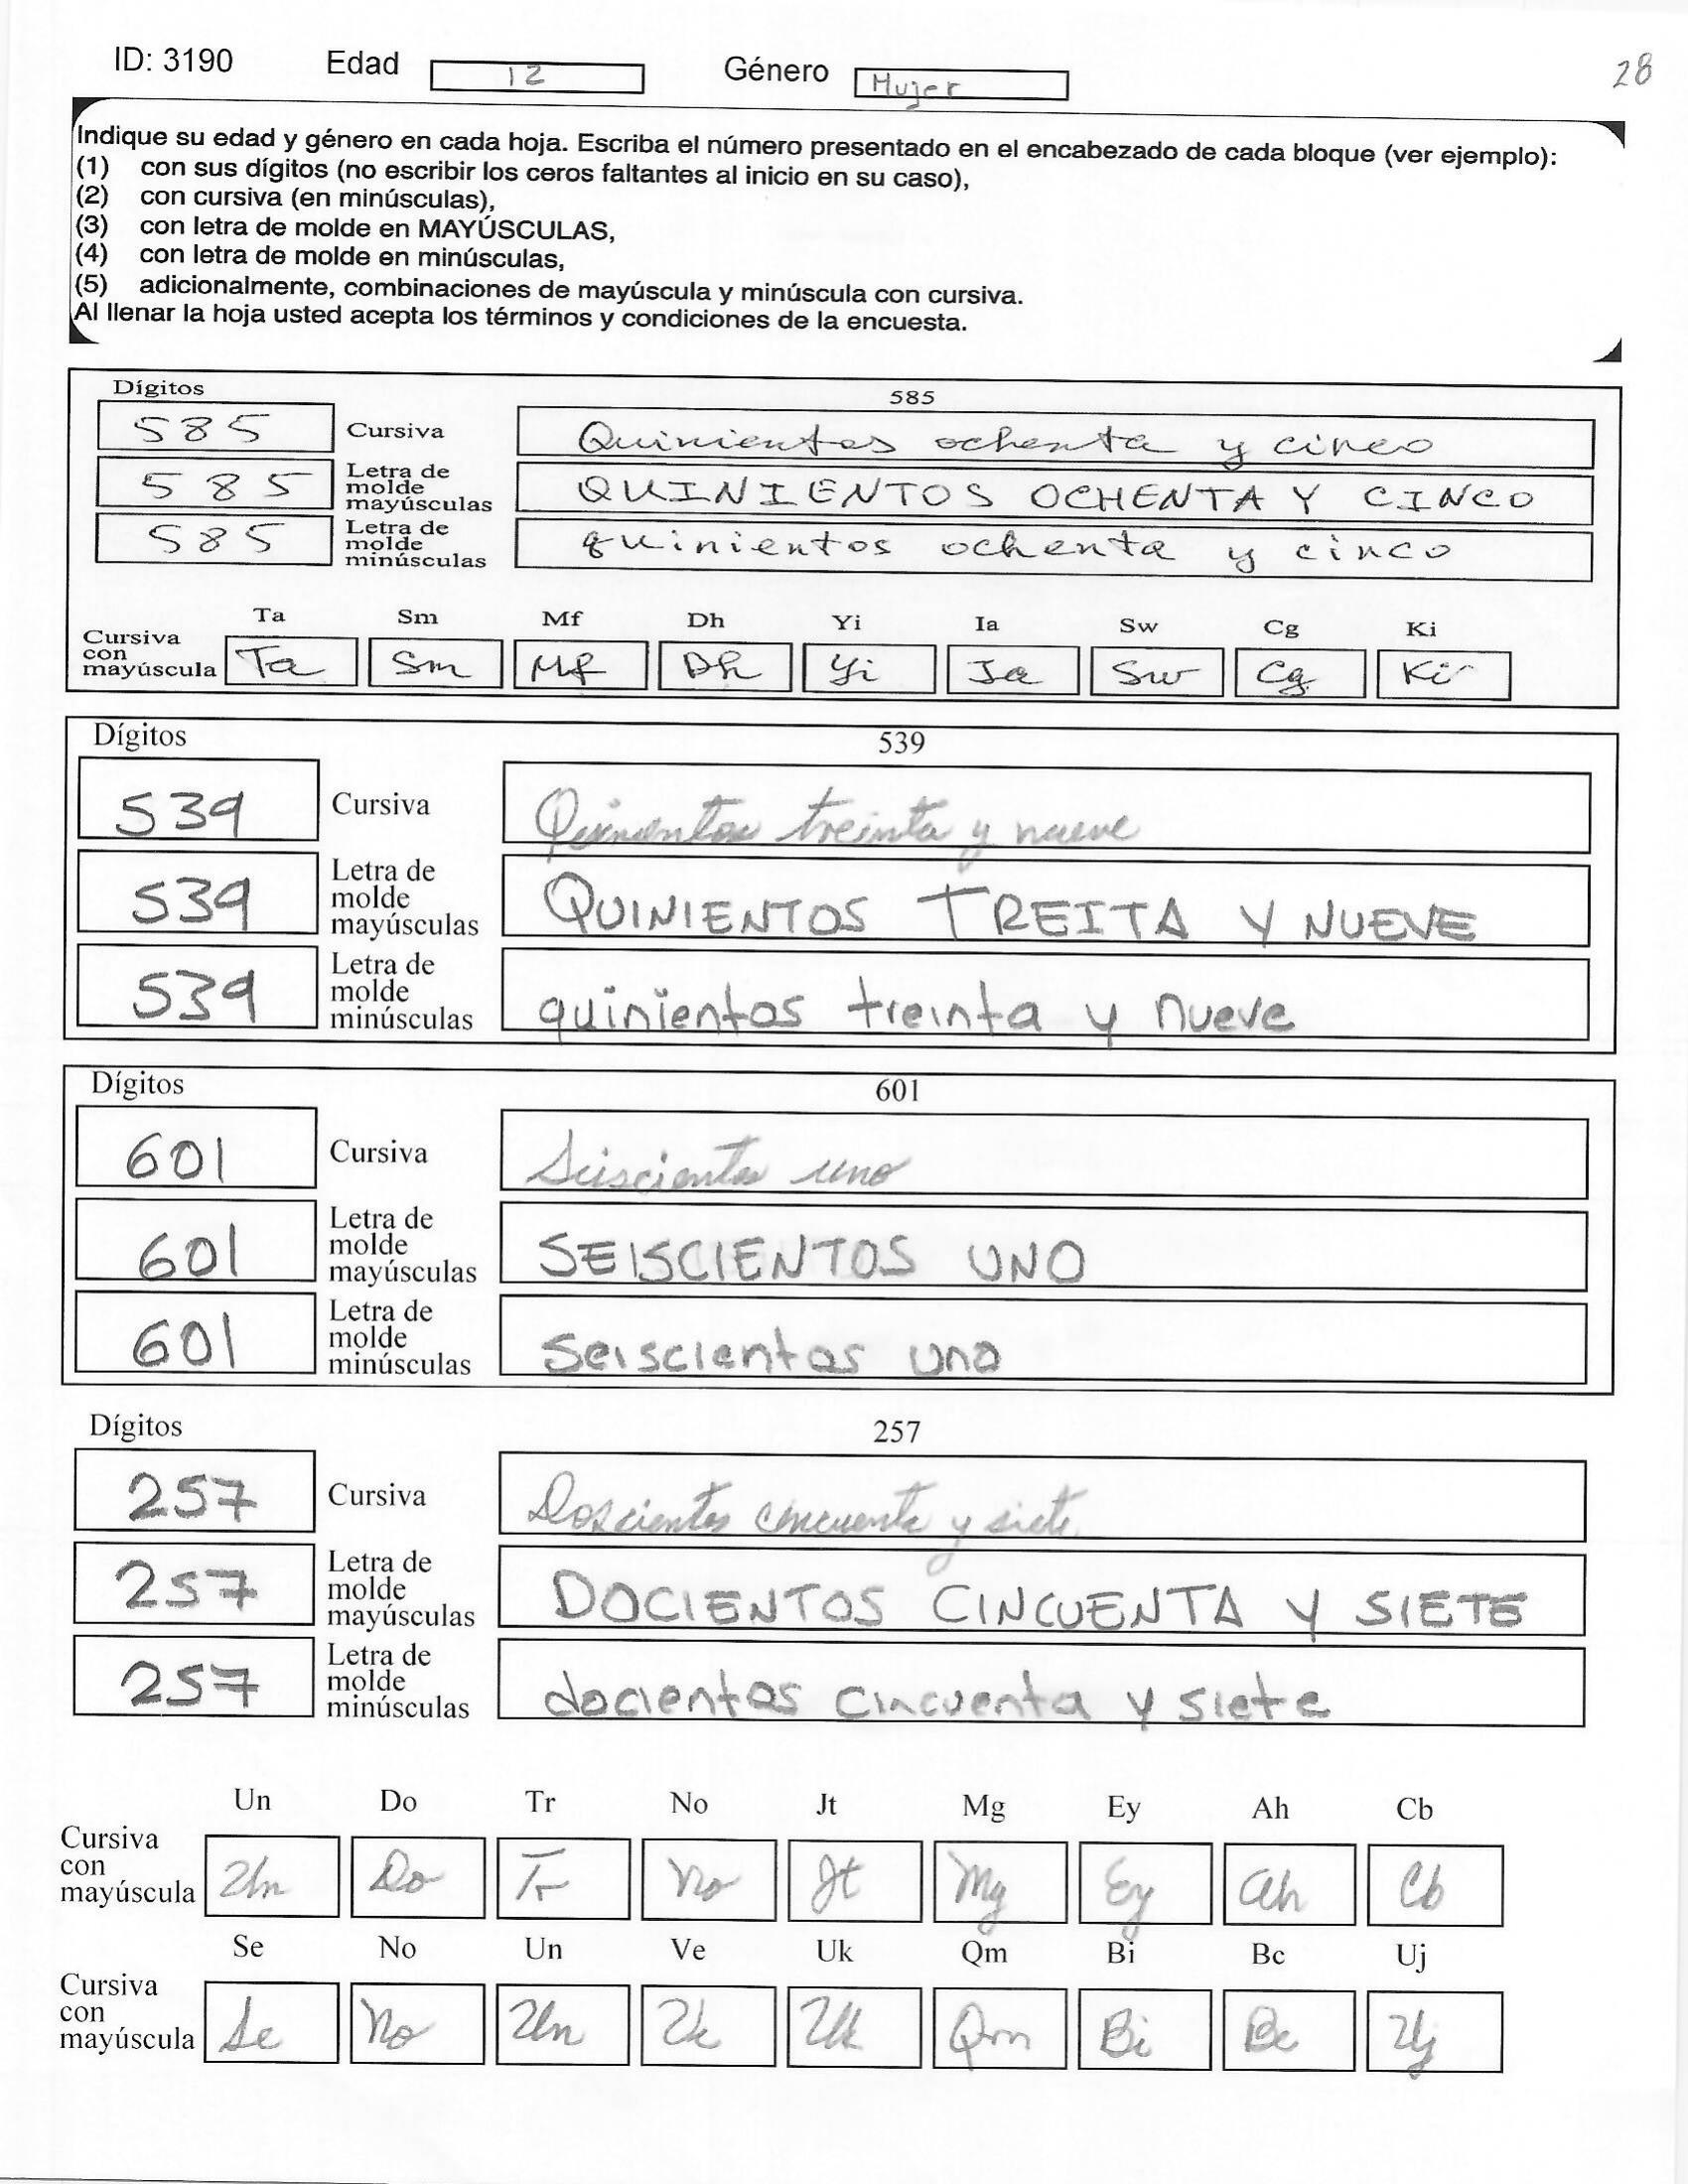 ID: 3190 Edad 12 Género Mujer 28
Indique su edad y género en cada hoja. Escriba el número presentado en el encabezado de cada bloque (ver ejemplo):
(1) con sus dígitos (no escribir los ceros faltantes al inicio en su caso),
(2) con cursiva (en minúsculas),
(3) con letra de molde en MAYÚSCULAS,
(4) con letra de molde en minúsculas,
(5) adicionalmente, combinaciones de mayúscula y minúscula con cursiva.
Al llenar la hoja usted acepta los términos y condiciones de la encuesta.
Dígitos 585
585 Cursiva Quinientos ochenta y cinco
585 Letra de molde mayúsculas QUINIENTOS OCHENTA Y CINCO
585 Letra de molde minúsculas quinientos ochenta y cinco
Ta Sm Mf Dh Yi Ia Sw Cg Ki
Cursiva con mayúscula Ta Sm Mf Dh Yi Ia Sw Cg Ki
Dígitos 539
539 Cursiva Quinientos treinta y nueve
539 Letra de molde mayúsculas QUINIENTOS TREITA Y NUEVE
539 Letra de molde minúsculas quinientos treinta y nueve
Dígitos 601
601 Cursiva Seiscientos uno
601 Letra de molde mayúsculas SEISCIENTOS UNO
601 Letra de molde minúsculas Seiscientos uno
Dígitos 257
257 Cursiva Doscientos cincuenta y siete
257 Letra de molde mayúsculas DOCIENTOS CINCUENTA Y SIETE
257 Letra de molde minúsculas docientos cincuenta y siete
Un Do Tr No Jt Mg Ey Ah Cb
Cursiva con mayúscula Un Do Tr No Jt Mg Ey Ah Cb
Se No Un Ve Uk Qm Bi Bc Uj
Cursiva con mayúscula Se No Un Ve Uk Qm Bi Bc Uj